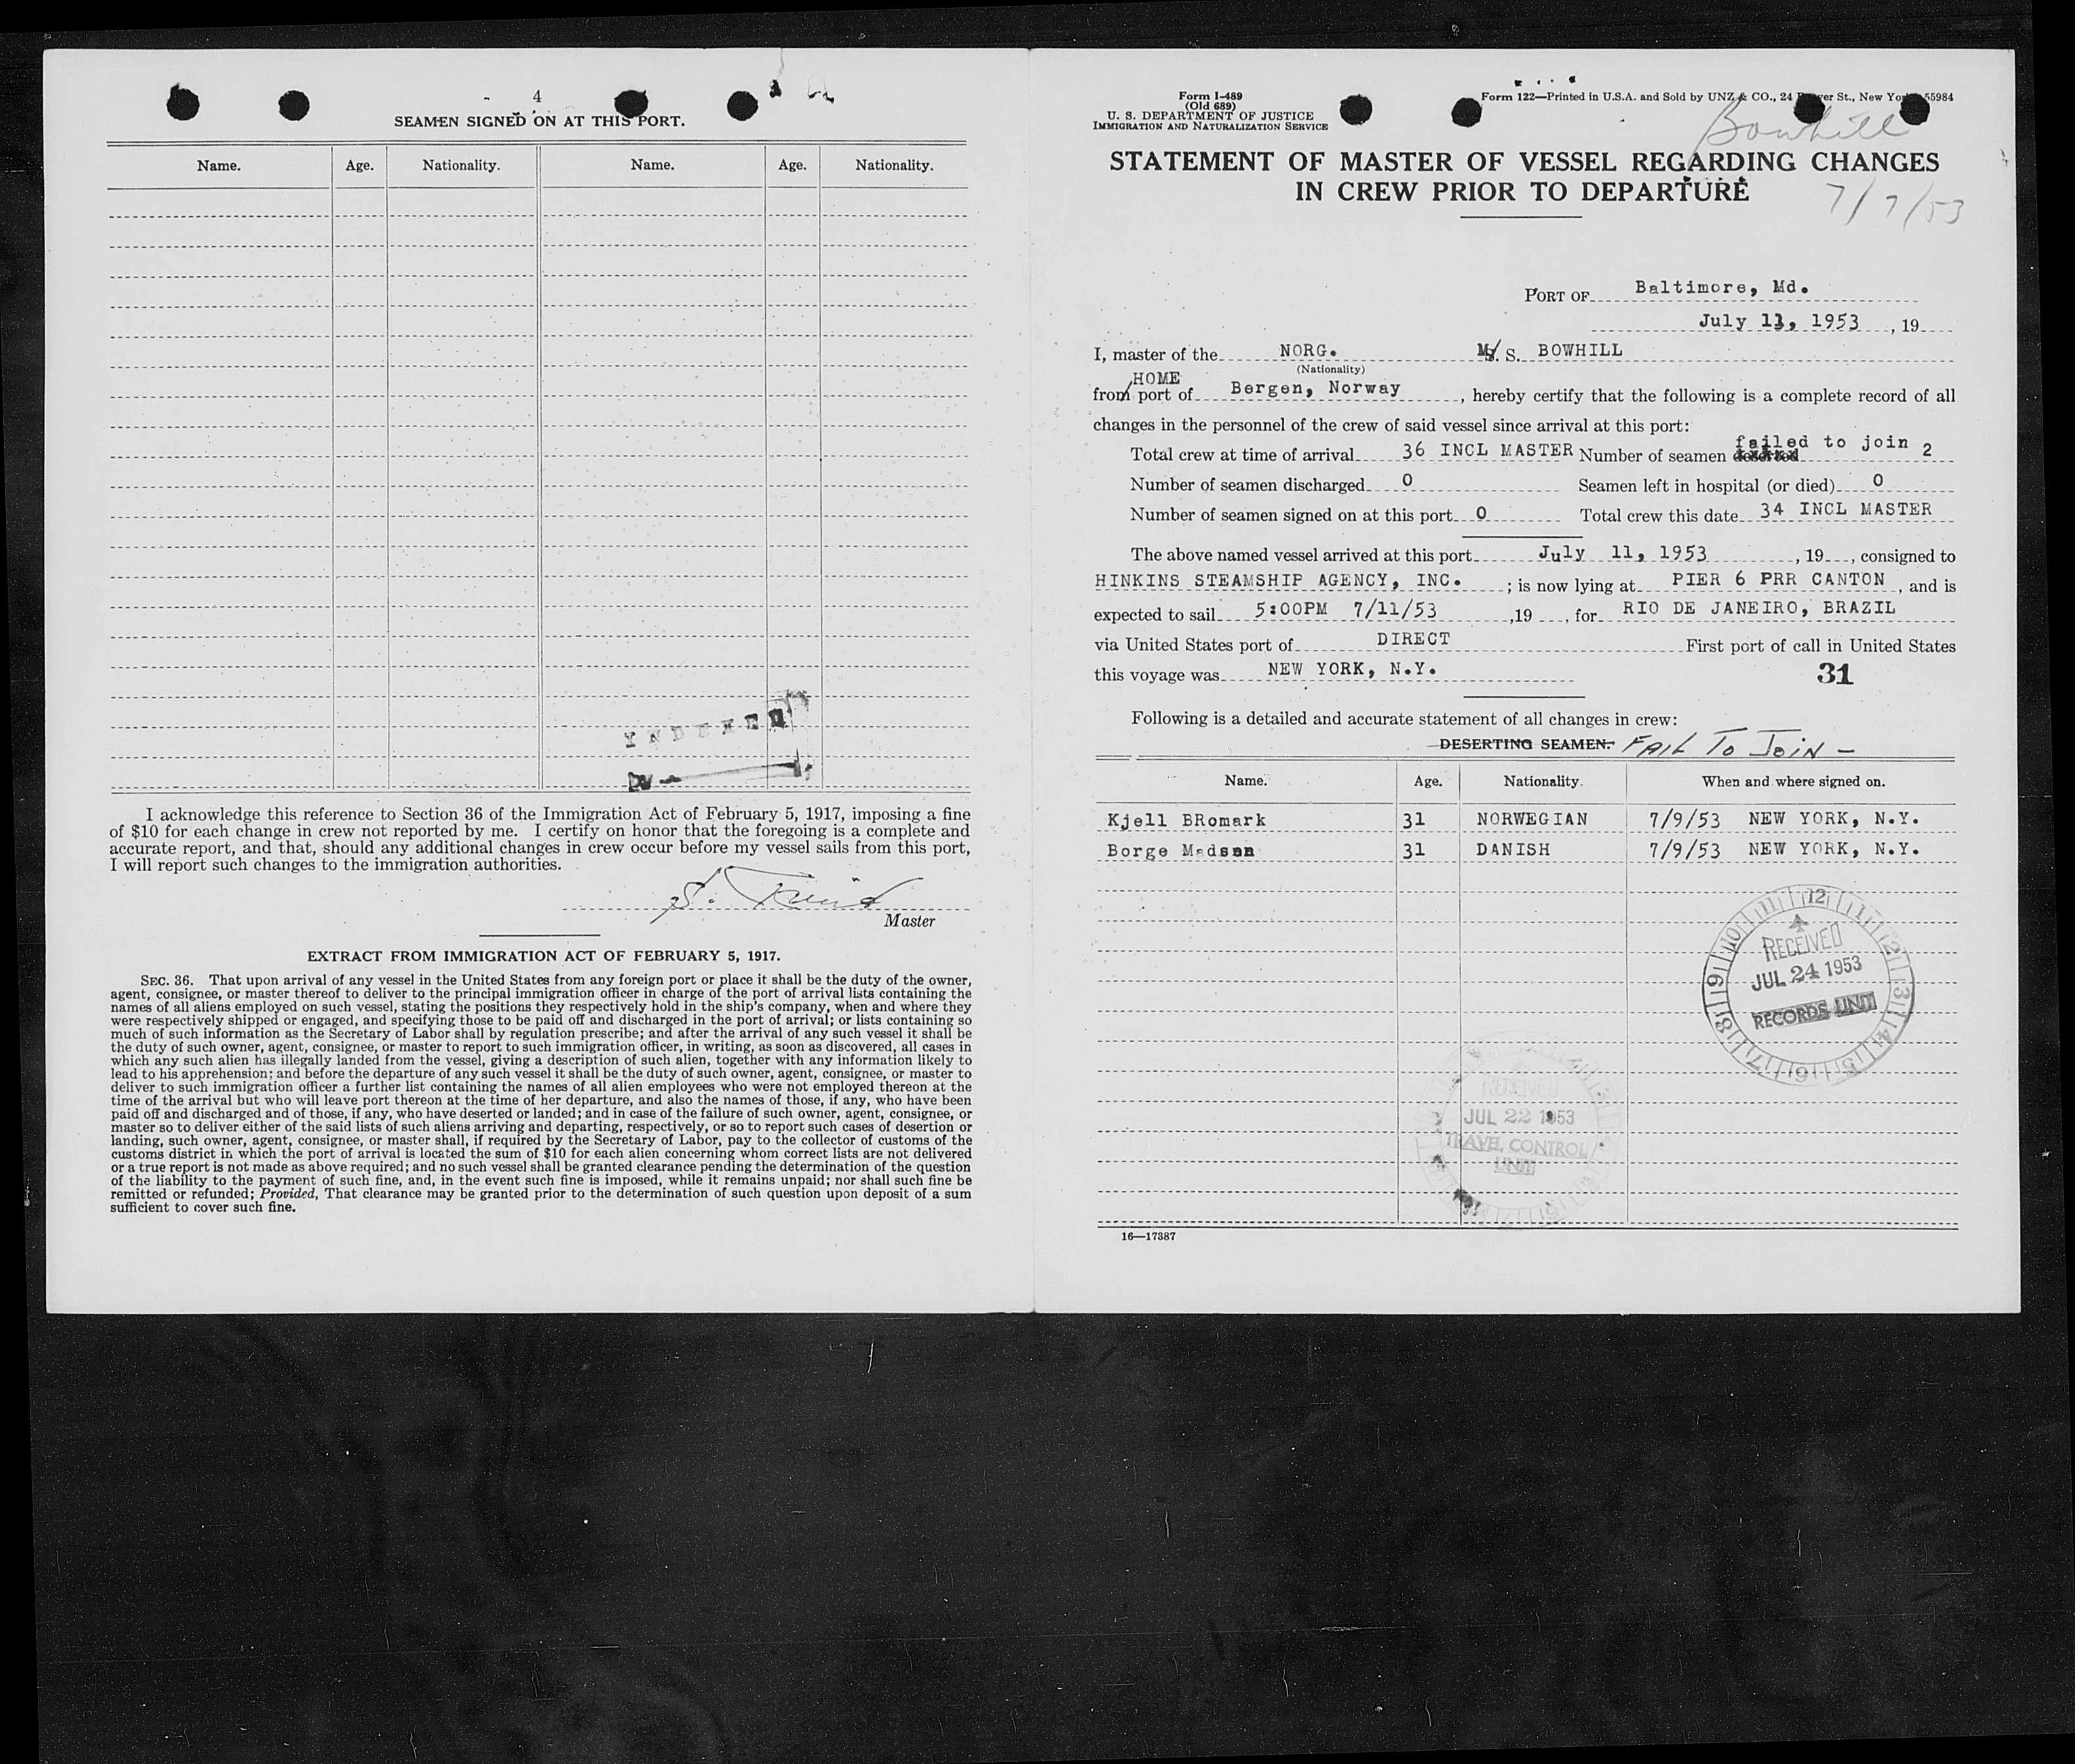 4
SEAMEN SIGNED ON AT THIS PORT.
Name. Age. Nationality. Name. Age. Nationality.
INDEXED
I acknowledge this reference to Section 36 of the Immigration Act of February 5, 1917, imposing a fine
of $10 for each change in crew not reported by me. I certify on honor that the foregoing is a complete and
accurate report, and that, should any additional changes in crew occur before my vessel sails from this port,
I will report such changes to the immigration authorities.
Master
EXTRACT FROM IMMIGRATION ACT OF FEBRUARY 5, 1917.
SEC. 36. That upon arrival of any vessel in the United States from any foreign port or place it shall be the duty of the owner,
agent, consignee, or master thereof to deliver to the principal immigration officer in charge of the port of arrival lists containing the
names of all aliens employed on such vessel, stating the positions they respectively hold in the ship's company, when and where they
were respectively shipped or engaged, and specifying those to be paid off and discharged in the port of arrival; or lists containing so
much of such information as the Secretary of Labor shall by regulation prescribe; and after the arrival of any such vessel it shall be
the duty of such owner, agent, consignee, or master to report to such immigration officer, in writing, as soon as discovered, all cases in
which any such alien has illegally landed from the vessel, giving a description of such alien, together with any information likely to
lead to his apprehension; and before the departure of any such vessel it shall be the duty of such owner, agent, consignee, or master to
deliver to such immigration officer a further list containing the names of all alien employees who were not employed thereon at the
time of the arrival but who will leave port thereon at the time of her departure, and also the names of those, if any, who have been
paid off and discharged and of those, if any, who have deserted or landed; and in case of the failure of such owner, agent, consignee, or
master so to deliver either of the said lists of such aliens arriving and departing, respectively, or so to report such cases of desertion or
landing, such owner, agent, consignee, or master shall, if required by the Secretary of Labor, pay to the collector of customs of the
customs district in which the port of arrival is located the sum of $10 for each alien concerning whom correct lists are not delivered
or a true report is not made as above required; and no such vessel shall be granted clearance pending the determination of the question
of the liability to the payment of such fine, and, in the event such fine is imposed, while it remains unpaid; nor shall such fine be
remitted or refunded; Provided, That clearance may be granted prior to the determination of such question upon deposit of a sum
sufficient to cover such fine.
Form I-489
(Old 689)
U. S. DEPARTMENT OF JUSTICE
IMMIGRATION AND NATURALIZATION SERVICE
Form 122—Printed in U.S.A. and Sold by UNZ & CO., 24 St., New 55984
Bowhill
STATEMENT OF MASTER OF VESSEL REGARDING CHANGES
IN CREW PRIOR TO DEPARTURE
7/7/53
PORT OF Baltimore, Md.
July 11, 1953, 19
I, master of the NORG. M/S. BOWHILL
(Nationality)
HOME
from port of Bergen, Norway, hereby certify that the following is a complete record of all
changes in the personnel of the crew of said vessel since arrival at this port:
Total crew at time of arrival 36 INCL MASTER Number of seamen deserted failed to join 2
Number of seamen discharged 0 Seamen left in hospital (or died) 0
Number of seamen signed on at this port 0 Total crew this date 34 INCL MASTER
The above named vessel arrived at this port July 11, 1953, 19, consigned to
HINKINS STEAMSHIP AGENCY, INC. ; is now lying at PIER 6 PRR CANTON, and is
expected to sail 5:00PM 7/11/53 ,19 , for RIO DE JANEIRO, BRAZIL
via United States port of DIRECT First port of call in United States
this voyage was NEW YORK, N.Y. 31
Following is a detailed and accurate statement of all changes in crew:
DESERTING SEAMEN. FAIL TO JOIN -
Name. Age. Nationality. When and where signed on.
Kjell BRomark 31 NORWEGIAN 7/9/53 NEW YORK, N.Y.
Borge Madsen 31 DANISH 7/9/53 NEW YORK, N.Y.
12 1 2 3 4 5 6 7 8 9 10 11
RECEIVED
JUL 24 1953
RECORDS UNIT
RECEIVED
JUL 22 1953
TRAVEL CONTROL
UNIT
16—17387